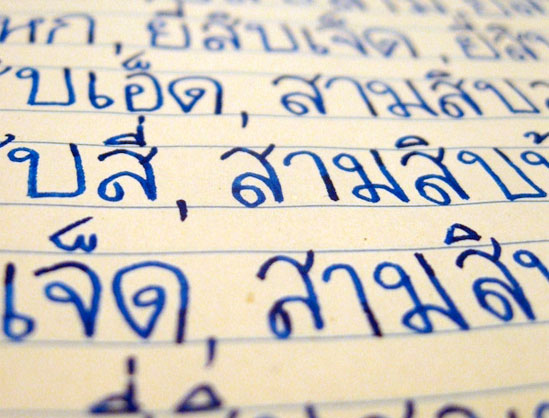 หก, ยี่สิบเจ็ด, ยี่สิ
บเอ็ด, สามสิบ
บสี่, สามสิบ
เจ็ด, สามสิบ